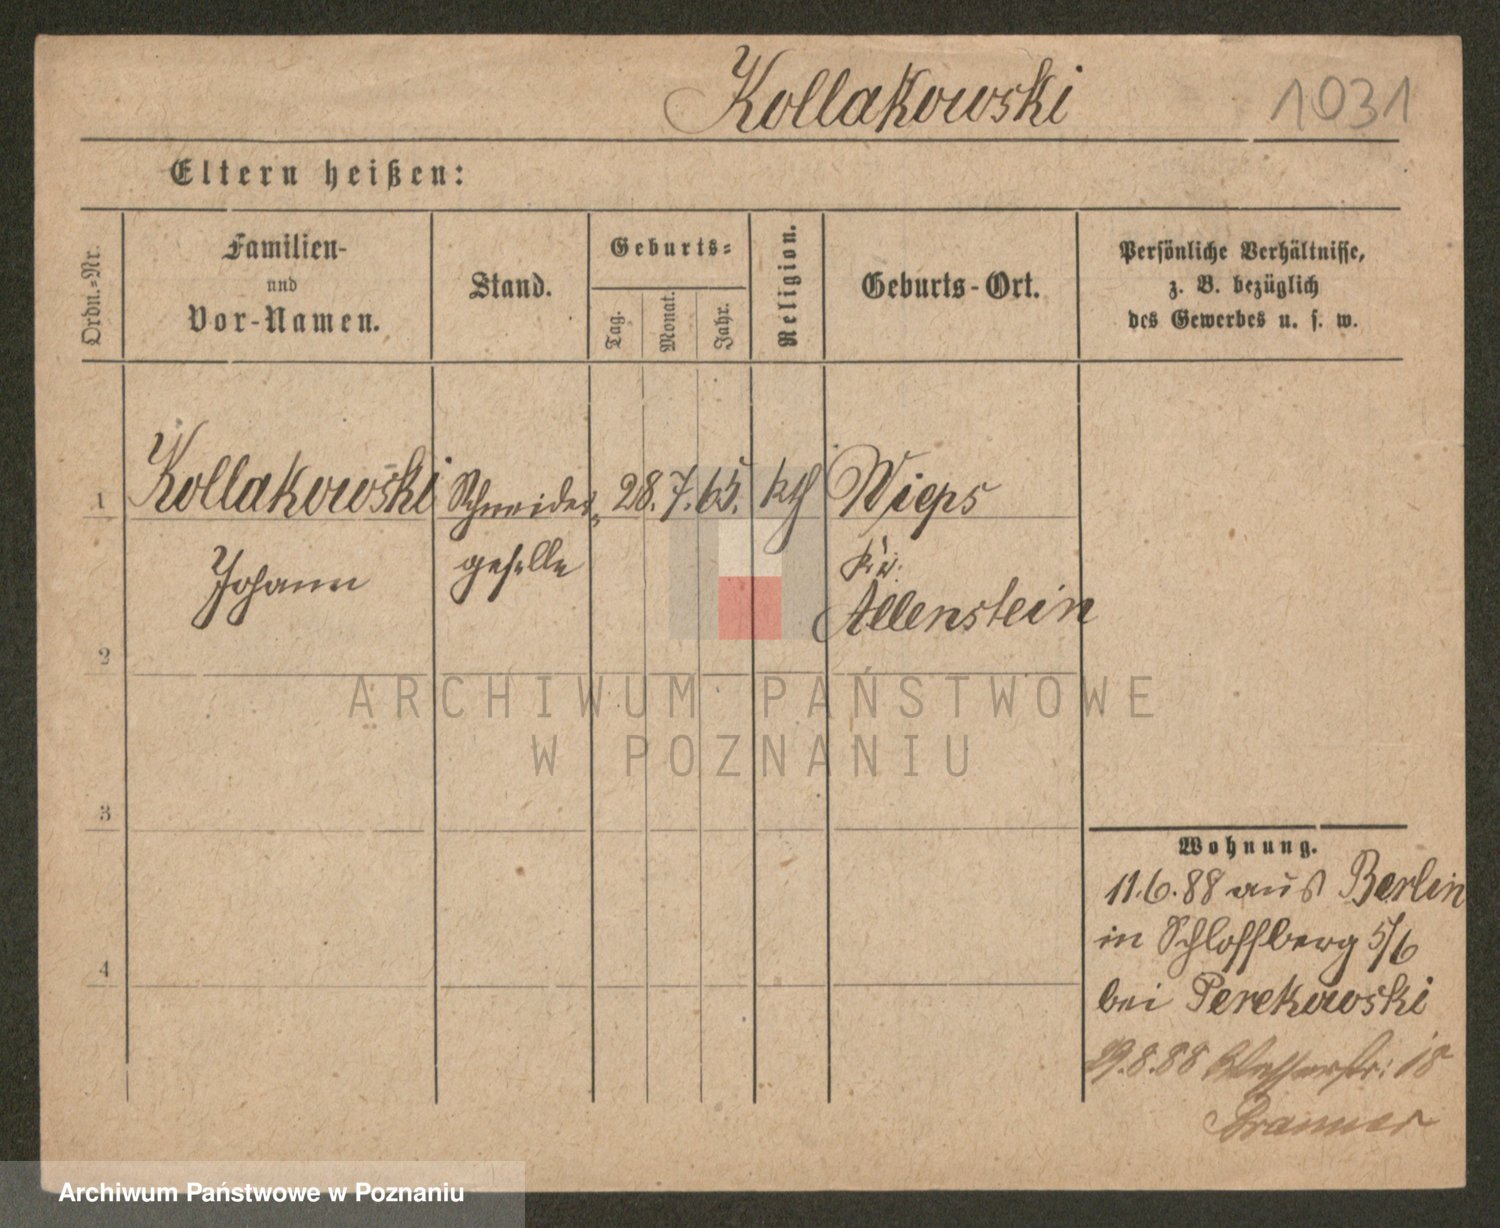 Kollakowski 1031
Eltern heißen:
Ordn.-Nr.
Familien-
und
Vor-Namen.
Stand.
Geburts-
Tag.
Monat.
Jahr.
Religion.
Geburts-Ort.
Persönliche Verhältnisse,
z. B. bezüglich
des Gewerbes u. s. w.
1 Kollakowski Schneider- 28. 7. 65. kth Wieps
Johann geselle Kr.
Allenstein
2
3
4
Wohnung.
11.6.88 aus Berlin
in Schloßberg 5/6
bei Perekowski
29.8.88 18
ARCHIWUM PAŃSTWOWE
W POZNANIU
Archiwum Państwowe w Poznaniu